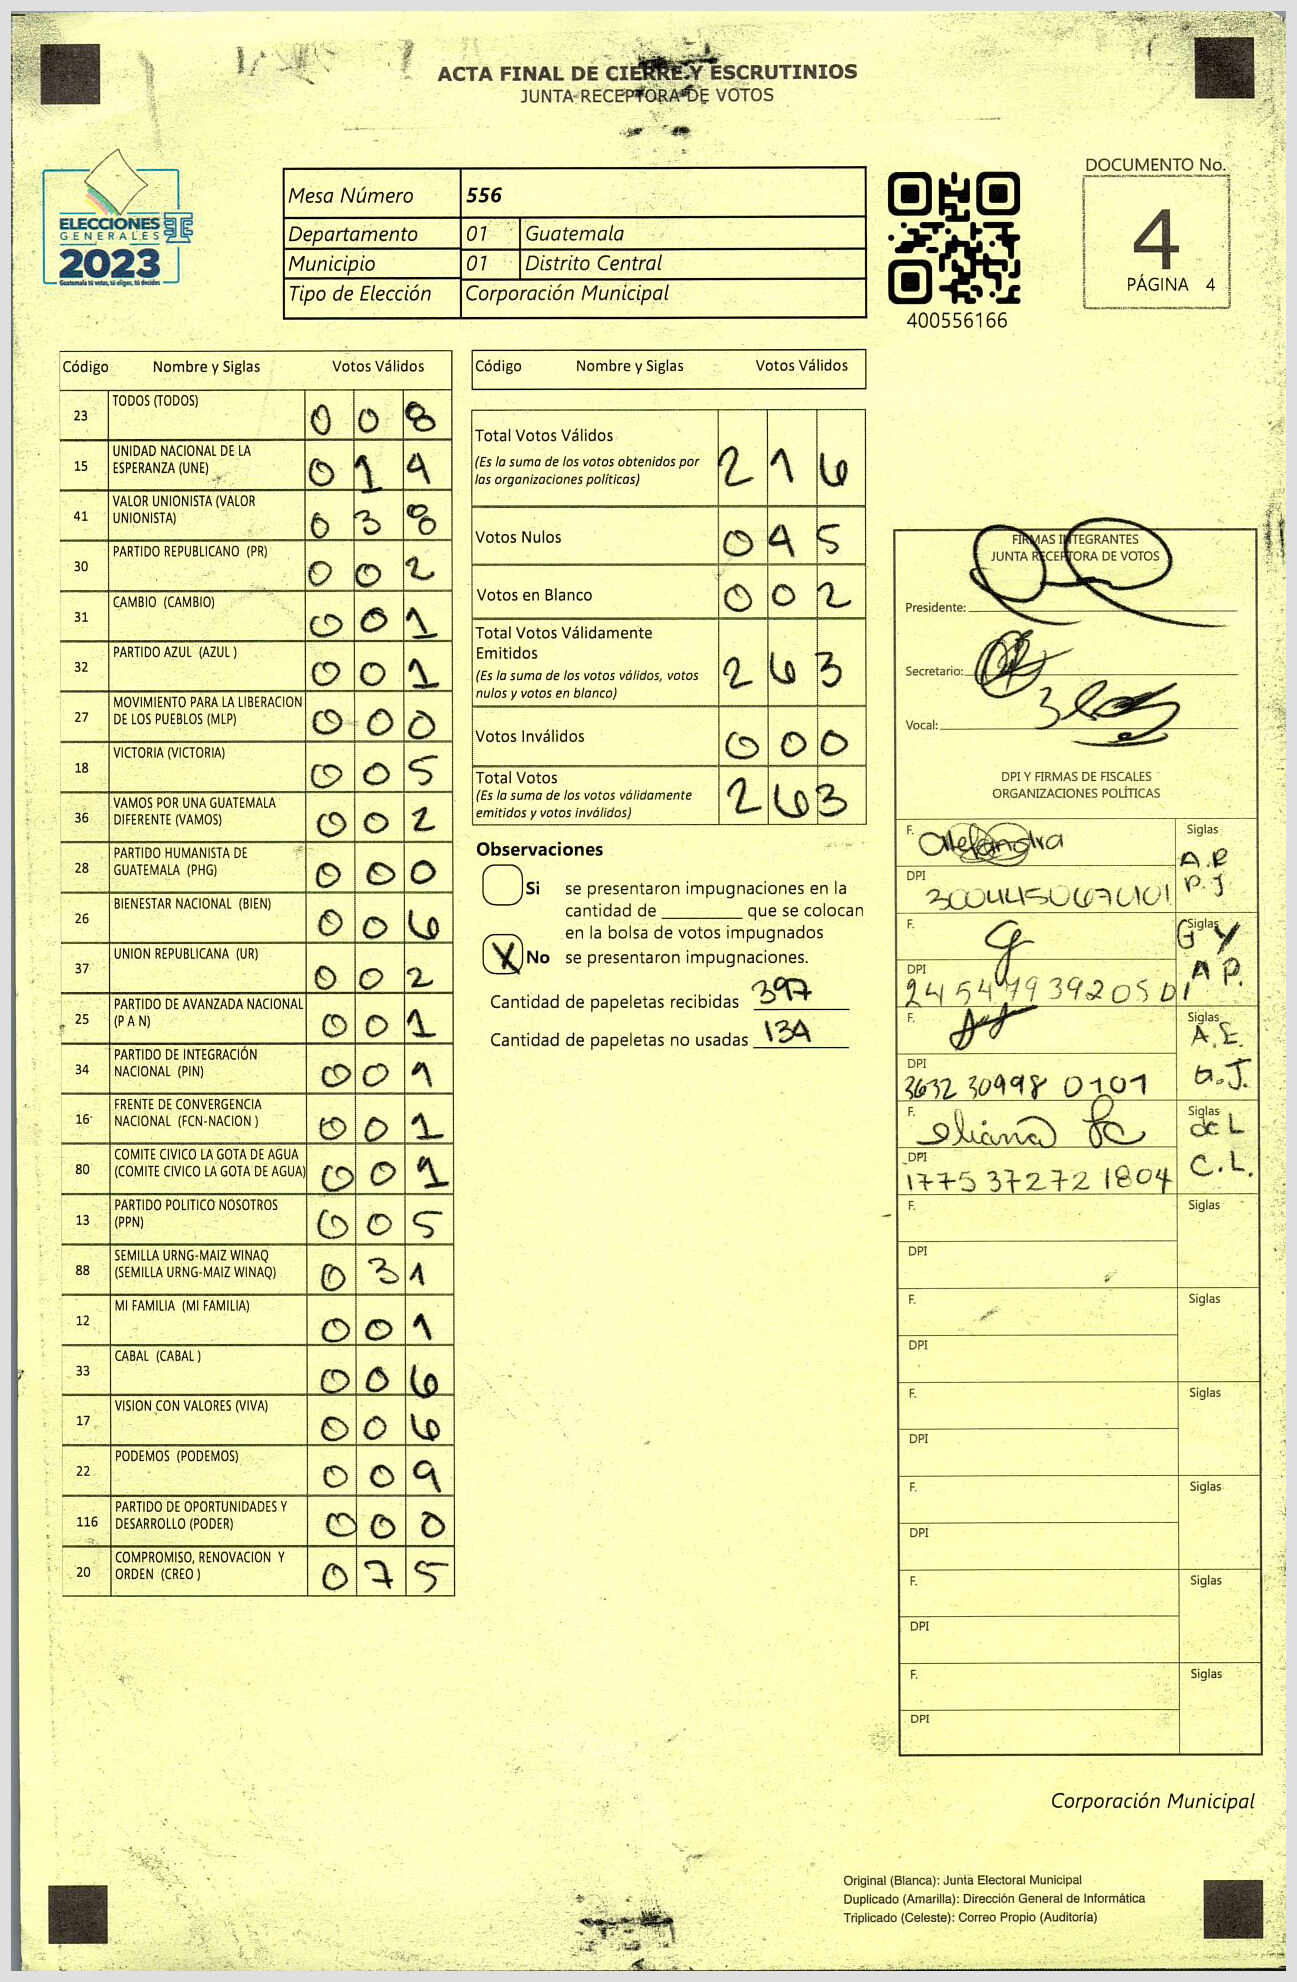 ACTA FINAL DE CIERRE Y ESCRUTINIOS
JUNTA RECEPTORA DE VOTOS
ELECCIONES
GENERALES
2023
Guatemala tú votas, tú eliges, tú decides
Mesa Número 556
Departamento 01 Guatemala
Municipio 01 Distrito Central
Tipo de Elección Corporación Municipal
400556166
DOCUMENTO No.
4
PÁGINA 4
Código Nombre y Siglas Votos Válidos
23 TODOS (TODOS) 0 0 8
15 UNIDAD NACIONAL DE LA
ESPERANZA (UNE) 0 1 4
41 VALOR UNIONISTA (VALOR
UNIONISTA) 0 3 8
30 PARTIDO REPUBLICANO (PR) 0 0 2
31 CAMBIO (CAMBIO) 0 0 1
32 PARTIDO AZUL (AZUL ) 0 0 1
27 MOVIMIENTO PARA LA LIBERACION
DE LOS PUEBLOS (MLP) 0 0 0
18 VICTORIA (VICTORIA) 0 0 5
36 VAMOS POR UNA GUATEMALA
DIFERENTE (VAMOS) 0 0 2
28 PARTIDO HUMANISTA DE
GUATEMALA (PHG) 0 0 0
26 BIENESTAR NACIONAL (BIEN) 0 0 6
37 UNION REPUBLICANA (UR) 0 0 2
25 PARTIDO DE AVANZADA NACIONAL
(P A N) 0 0 1
34 PARTIDO DE INTEGRACIÓN
NACIONAL (PIN) 0 0 1
16 FRENTE DE CONVERGENCIA
NACIONAL (FCN-NACION ) 0 0 1
80 COMITE CIVICO LA GOTA DE AGUA
(COMITE CIVICO LA GOTA DE AGUA) 0 0 1
13 PARTIDO POLITICO NOSOTROS
(PPN) 0 0 5
88 SEMILLA URNG-MAIZ WINAQ
(SEMILLA URNG-MAIZ WINAQ) 0 3 1
12 MI FAMILIA (MI FAMILIA) 0 0 1
33 CABAL (CABAL ) 0 0 6
17 VISION CON VALORES (VIVA) 0 0 6
22 PODEMOS (PODEMOS) 0 0 9
116 PARTIDO DE OPORTUNIDADES Y
DESARROLLO (PODER) 0 0 0
20 COMPROMISO, RENOVACION Y
ORDEN (CREO ) 0 7 5
Código Nombre y Siglas Votos Válidos
Total Votos Válidos 2 1 6
(Es la suma de los votos obtenidos por
las organizaciones políticas)
Votos Nulos 0 4 5
Votos en Blanco 0 0 2
Total Votos Válidamente
Emitidos 2 6 3
(Es la suma de los votos válidos, votos
nulos y votos en blanco)
Votos Inválidos 0 0 0
Total Votos 2 6 3
(Es la suma de los votos válidamente
emitidos y votos inválidos)
Observaciones
Si se presentaron impugnaciones en la
cantidad de ________ que se colocan
en la bolsa de votos impugnados
X No se presentaron impugnaciones.
Cantidad de papeletas recibidas 397
Cantidad de papeletas no usadas 134
FIRMAS INTEGRANTES
JUNTA RECEPTORA DE VOTOS
Presidente:
Secretario:
Vocal:
DPI Y FIRMAS DE FISCALES
ORGANIZACIONES POLÍTICAS
F. Alejandra Siglas
A.R
P.J
DPI 3004450670101
F. Siglas
G Y
A P.
DPI 2454793920501
F. Siglas
A.E.
G.J.
DPI 3632 30998 0101
F. eliana Siglas
de L
C.L.
DPI 1775 37272 1804
F. Siglas
DPI
F. Siglas
DPI
F. Siglas
DPI
F. Siglas
DPI
F. Siglas
DPI
F. Siglas
DPI
Corporación Municipal
Original (Blanca): Junta Electoral Municipal
Duplicado (Amarilla): Dirección General de Informática
Triplicado (Celeste): Correo Propio (Auditoría)